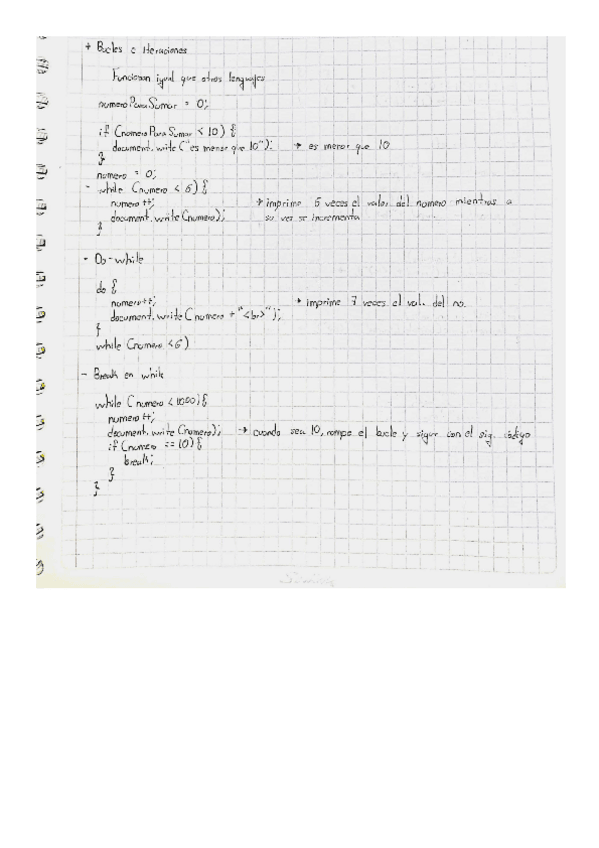 + Bucles o Iteraciones
Funcionan igual que otros lenguajes
numeroParaSumar = 0;
if (numeroParaSumar < 10) {
document.write ("es menor que 10"); → es menor que 10
}
numero = 0;
- while (numero < 6) {
numero ++; → imprime 6 veces el valor del numero mientras a
document.write (numero); su ves se incrementa
}
- Do-while
do {
numero++; → imprime 7 veces el val. del no.
document.write (numero + "<br>");
}
while (numero <6)
- Break en while
while (numero < 1000) {
numero ++;
document.write (numero); → cuando sea 10, rompe el bucle y sigue con el sig. código
if (numero == 10) {
break;
}
}